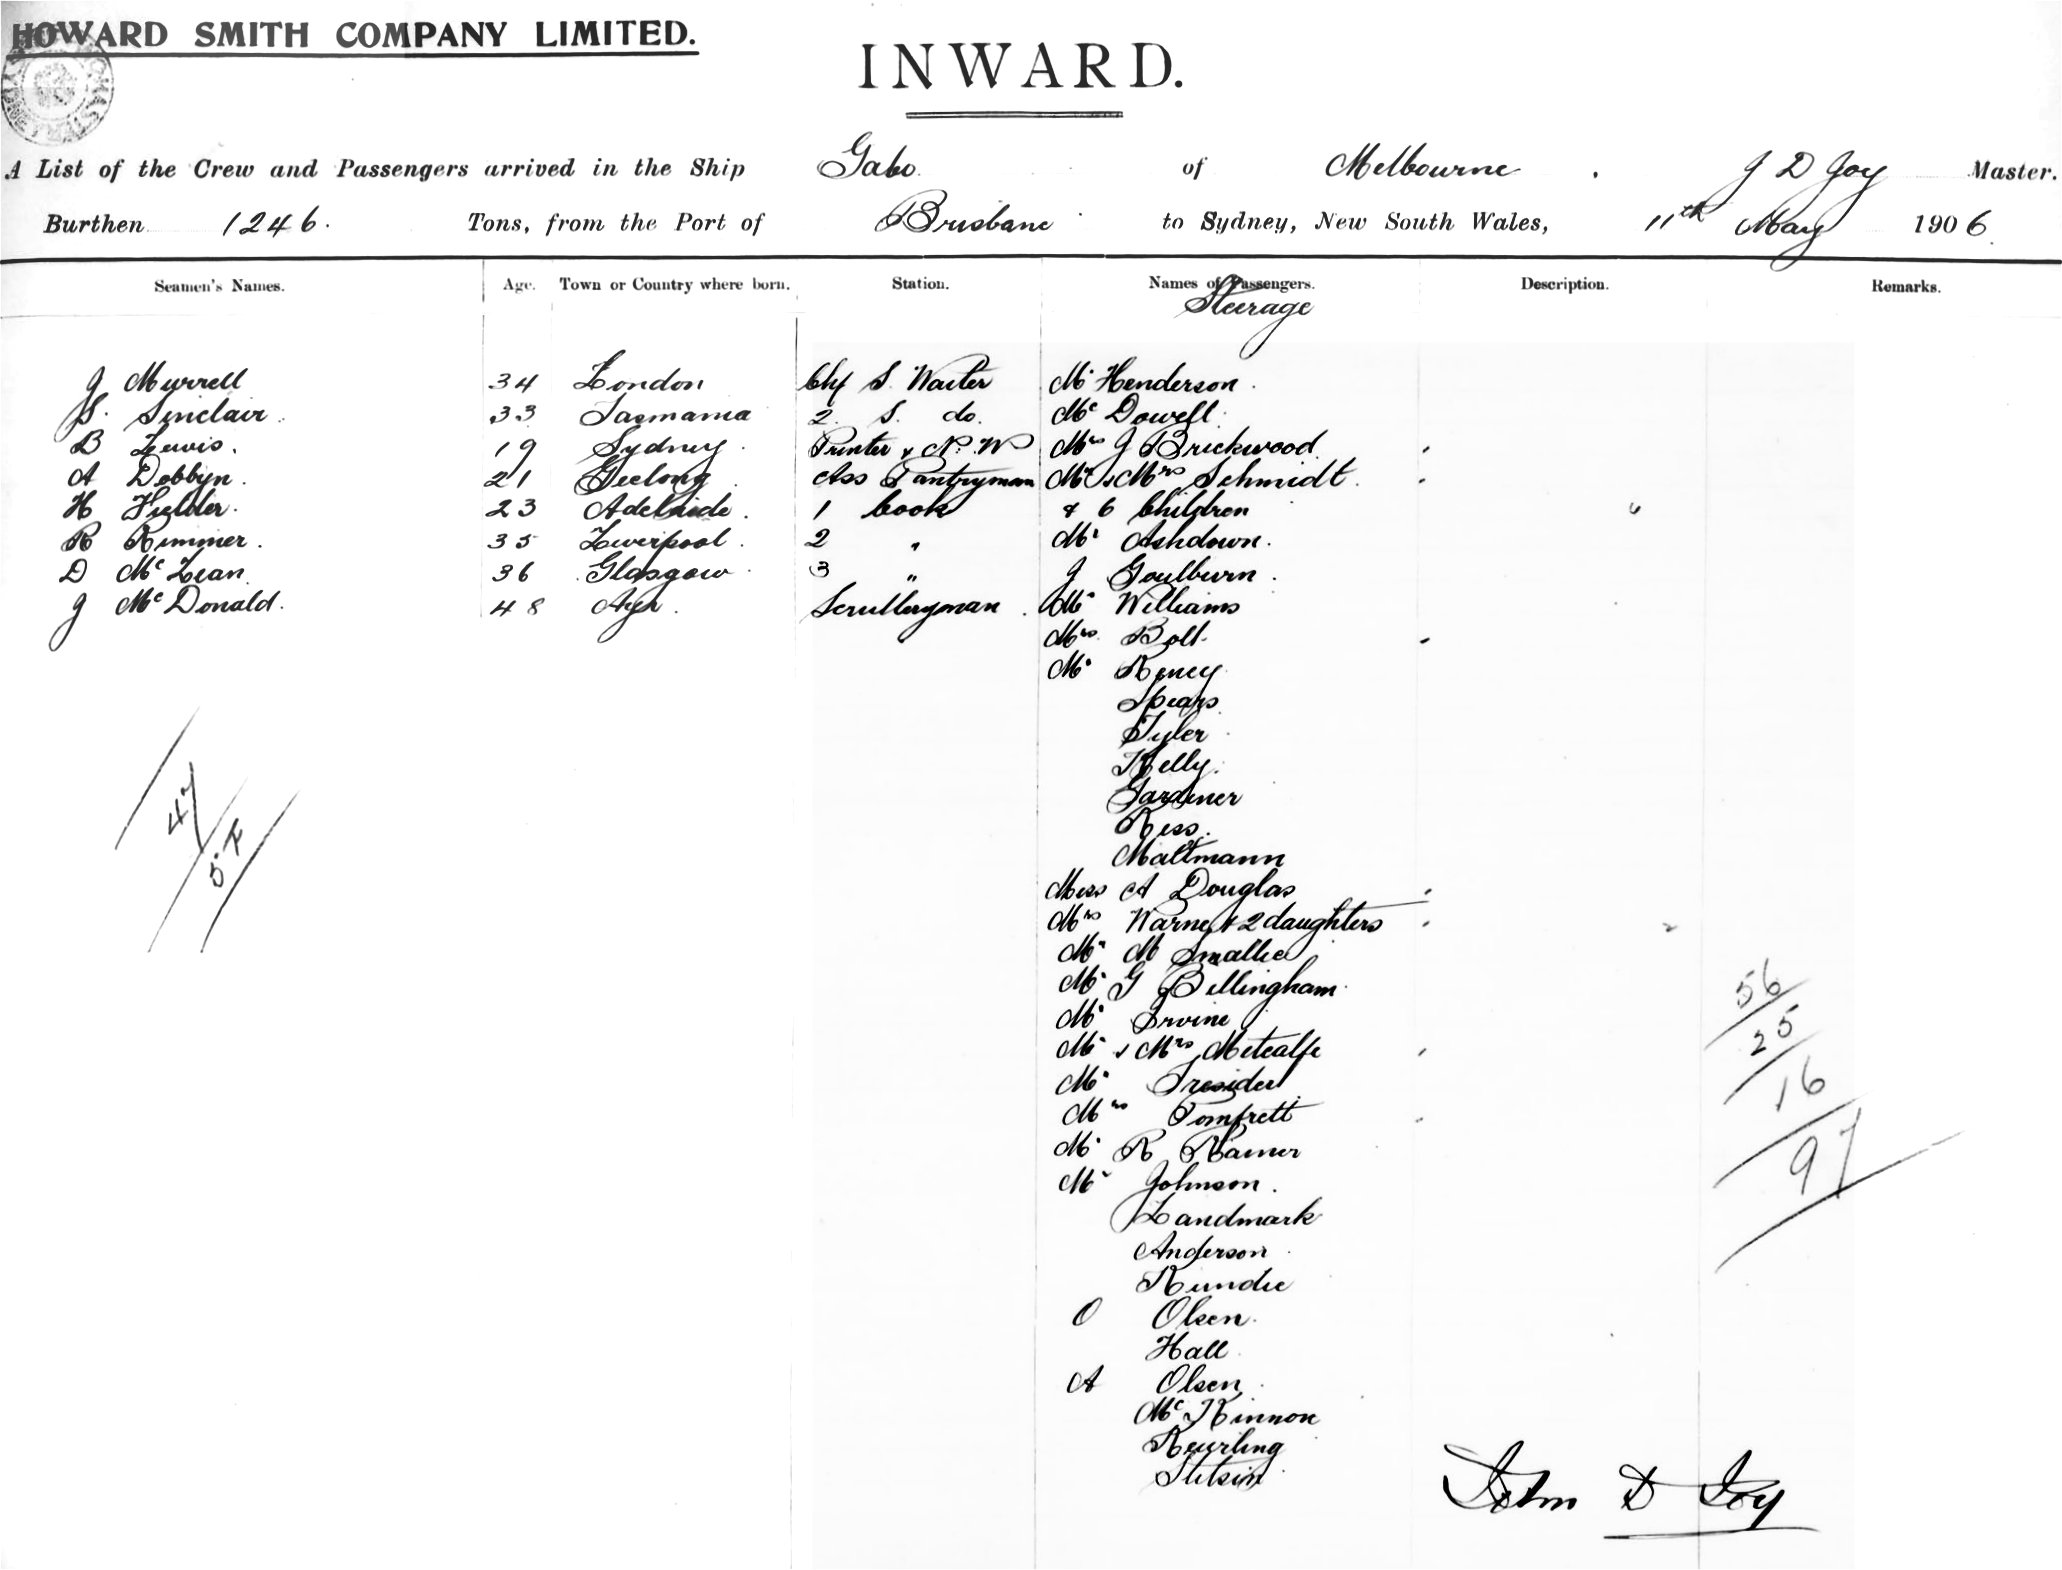 HOWARD SMITH COMPANY LIMITED.
INWARD.
A List of the Crew and Passengers arrived in the Ship Gabo of Melbourne, J D Joy Master.
Burthen 1246. Tons, from the Port of Brisbane to Sydney, New South Wales, 11th May 1906
Seamen's Names. Age. Town or Country where born. Station. Names of Passengers. Description. Remarks.
Steerage
J Murrell 34 London Chf S. Waiter Mr Henderson.
S. Sinclair 33 Tasmania 2. S. do. McDowell.
B Lewis. 19 Sydney Printer & N. W Mrs J Brickwood
A Dobbyn. 21 Geelong Ass Pantryman Mr & Mrs Schmidt.
H Fielder. 23 Adelaide. 1 Cook & 6 Children 6
R Rimmer. 35 Liverpool. 2 " Mr Ashdown.
D McLean 36 Glasgow. 3 " J Goulburn.
J McDonald. 48 Ayr. Sculleryman Mr Williams
Mrs. Bolt.
Mr
Spears
Tyler
Kelly.
Gardiner
Ress.
Maltmann
Miss A Douglas
Mrs Warne & 2 daughters 2
Mr M Smallie
Mr G Billingham
Mr Irvine
Mr & Mrs Metcalfe
Mr Tresider
Mrs Pomfrett
Mr R
Mr Johnson.
Landmark
Anderson
Rundie
O Olsen.
Hall
A Olsen.
McKinnon
47
5 F
56
25
16
97
John D Joy